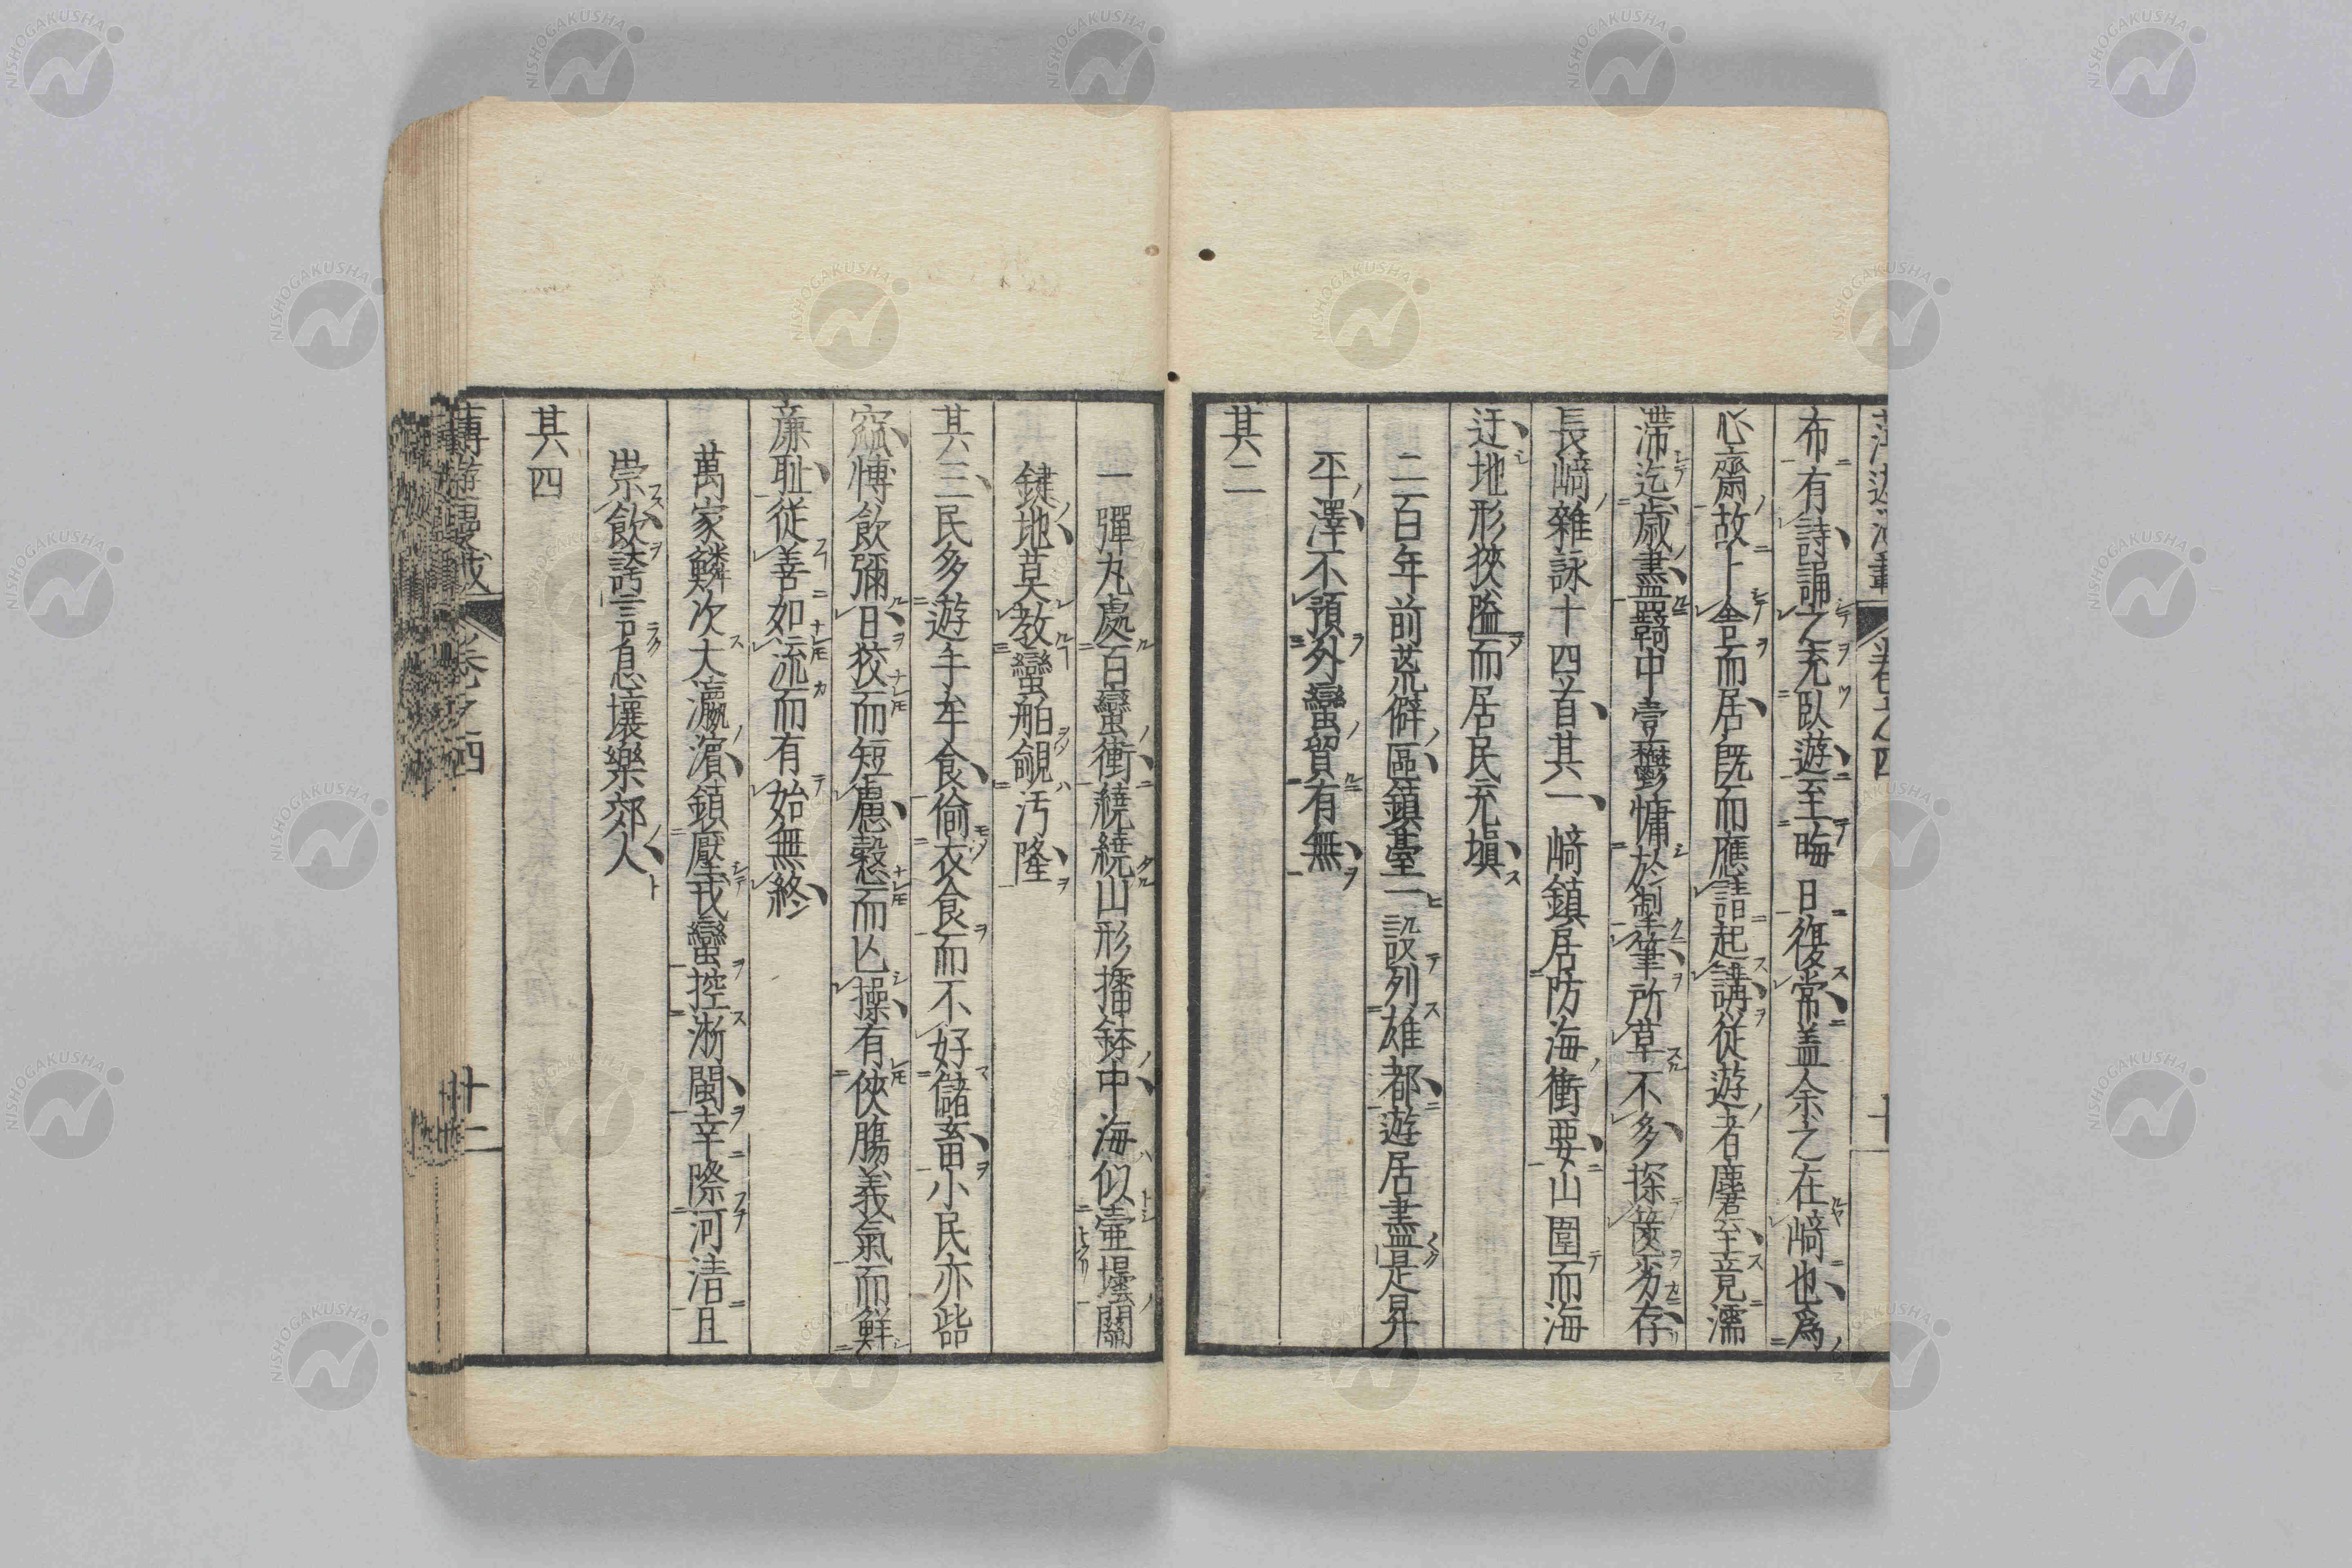 布有詩誦之充臥遊至晦日復常蓋余之在﨑也爲
心齋故卜舍而居既而應請起講從遊者麕至竟濡
滯迄歳盡羇中壹鬱慵於掣筆所草不多探篋劣存
長﨑雜詠十四首其一﨑鎮居防海衝要山圍而海
迂地形狹隘而居民充塡
二百年前荒僻區鎮臺一設列雄都遊居盡是昇
平澤不預外蠻貿有無
其二
一彈丸處百蠻衝繞繞山形擂鉢中海似壷壜關
鍵地莫教蠻舶覦汚隆
其三民多遊手牟食偷衣食而不好儲畜小民亦啙
窳愽飲彌日狡而短慮慤而亾操有俠膓義氣而鮮
廉耻從善如流而有始無終
萬家鱗次大瀛濵鎮壓戎蠻控浙閩幸際河清且
崇飲謗言息壤樂郊人
其四
卷之四
十二